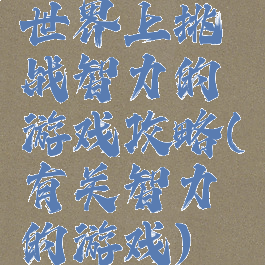 世界上挑
战智力的
游戏攻略(
有关智力
的游戏)